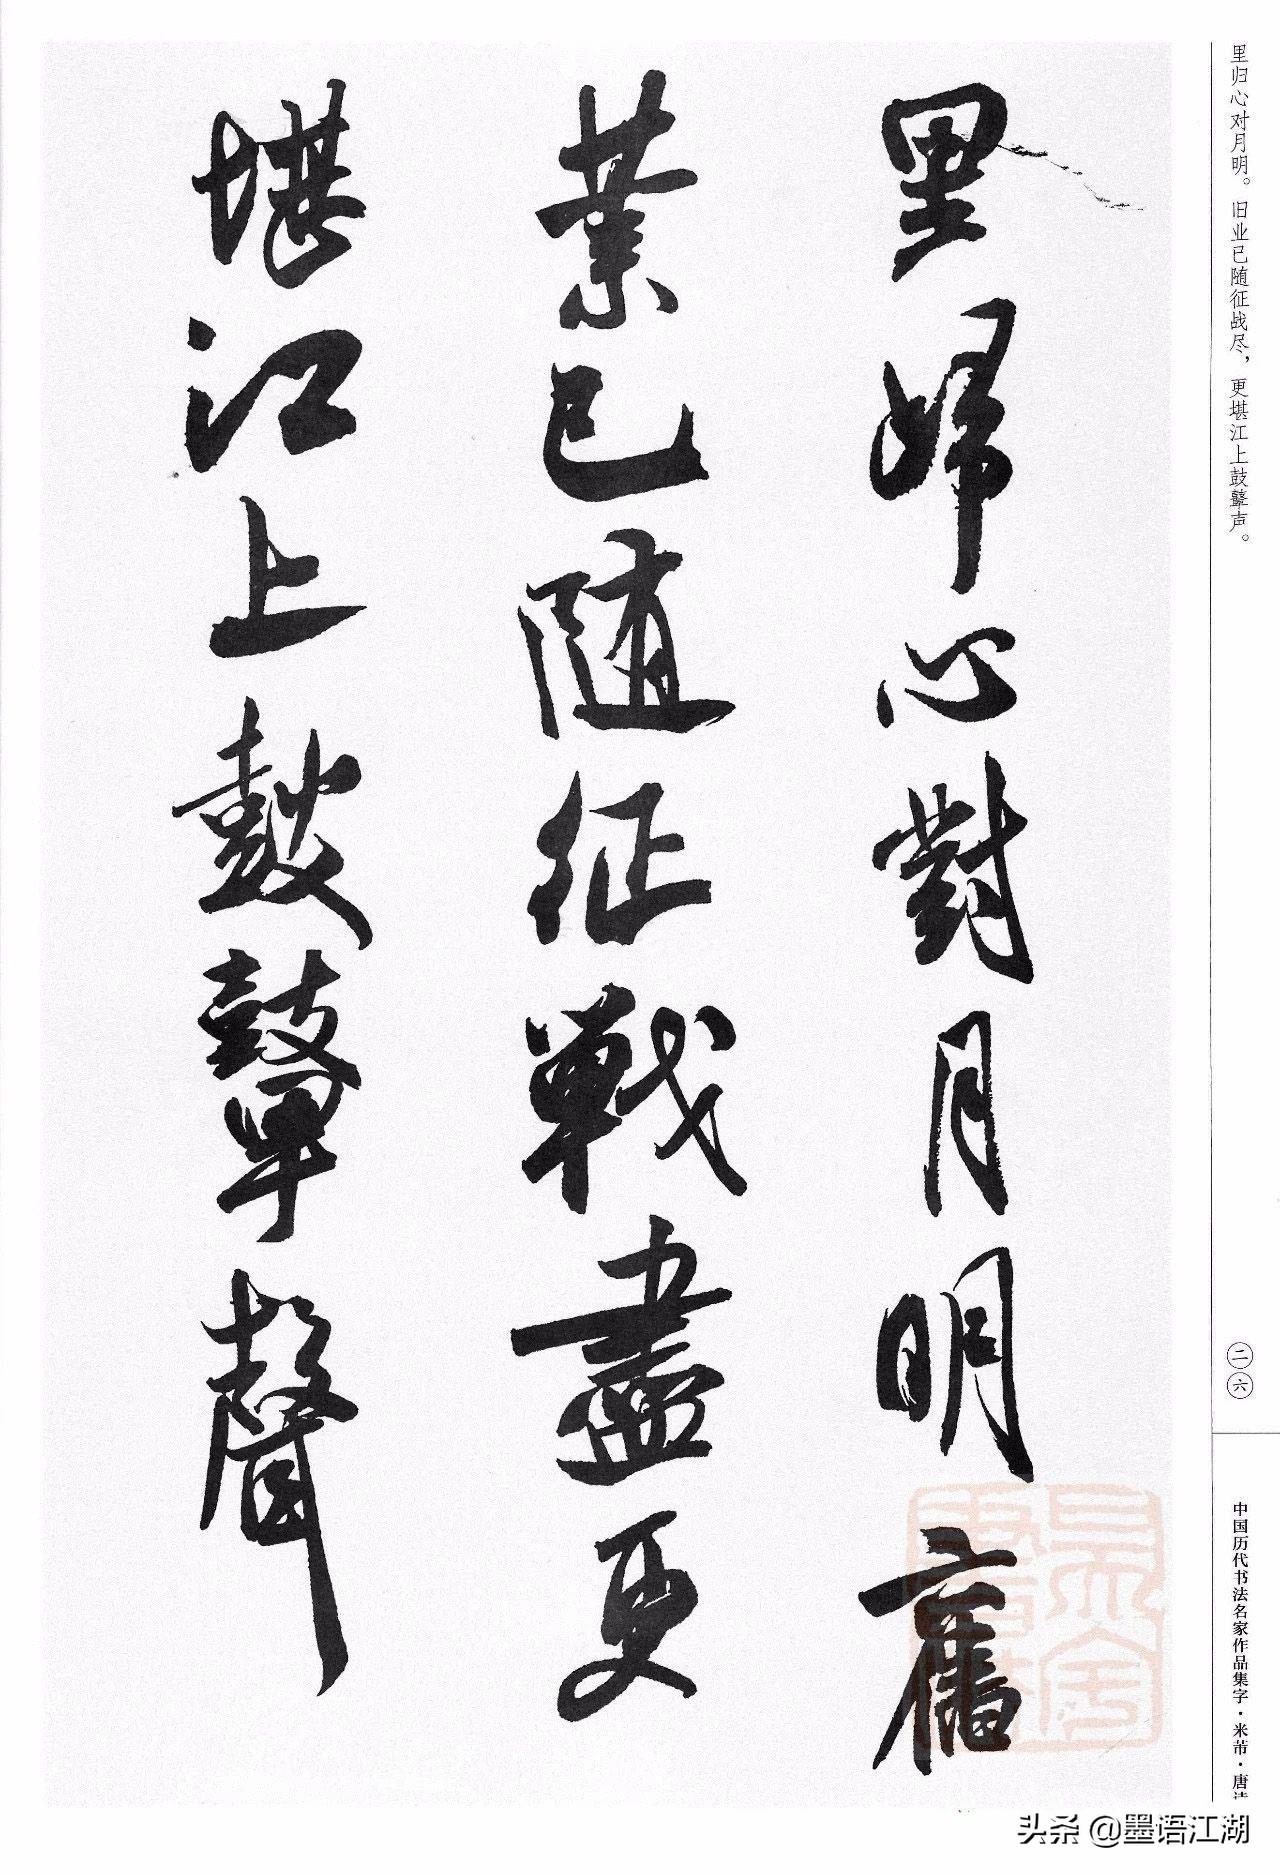 里归心对月明。旧业已随征战尽，更堪江上鼓鼙声。
里歸心對月明舊
業已隨征戰盡更
堪江上鼓鼙聲
二六
中国历代书法名家作品集字·米芾·唐诗
头条 @墨语江湖